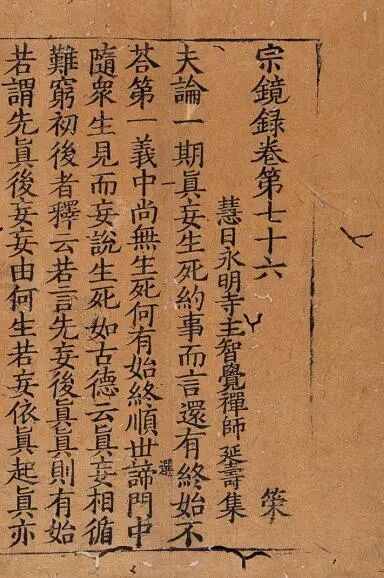 宗鏡録卷第七十六 䇿
慧日永明寺主智覺禪師延壽集
夫論一期真妄生死約事而言還有終始不
荅第一義中尚無生死何有始終順世諦門中
隨衆生見而妄説生死如古德云真妄相循
難窮初後者釋云若言先妄後真真則有始
若謂先真後妄妄由何生若妄依真起真亦